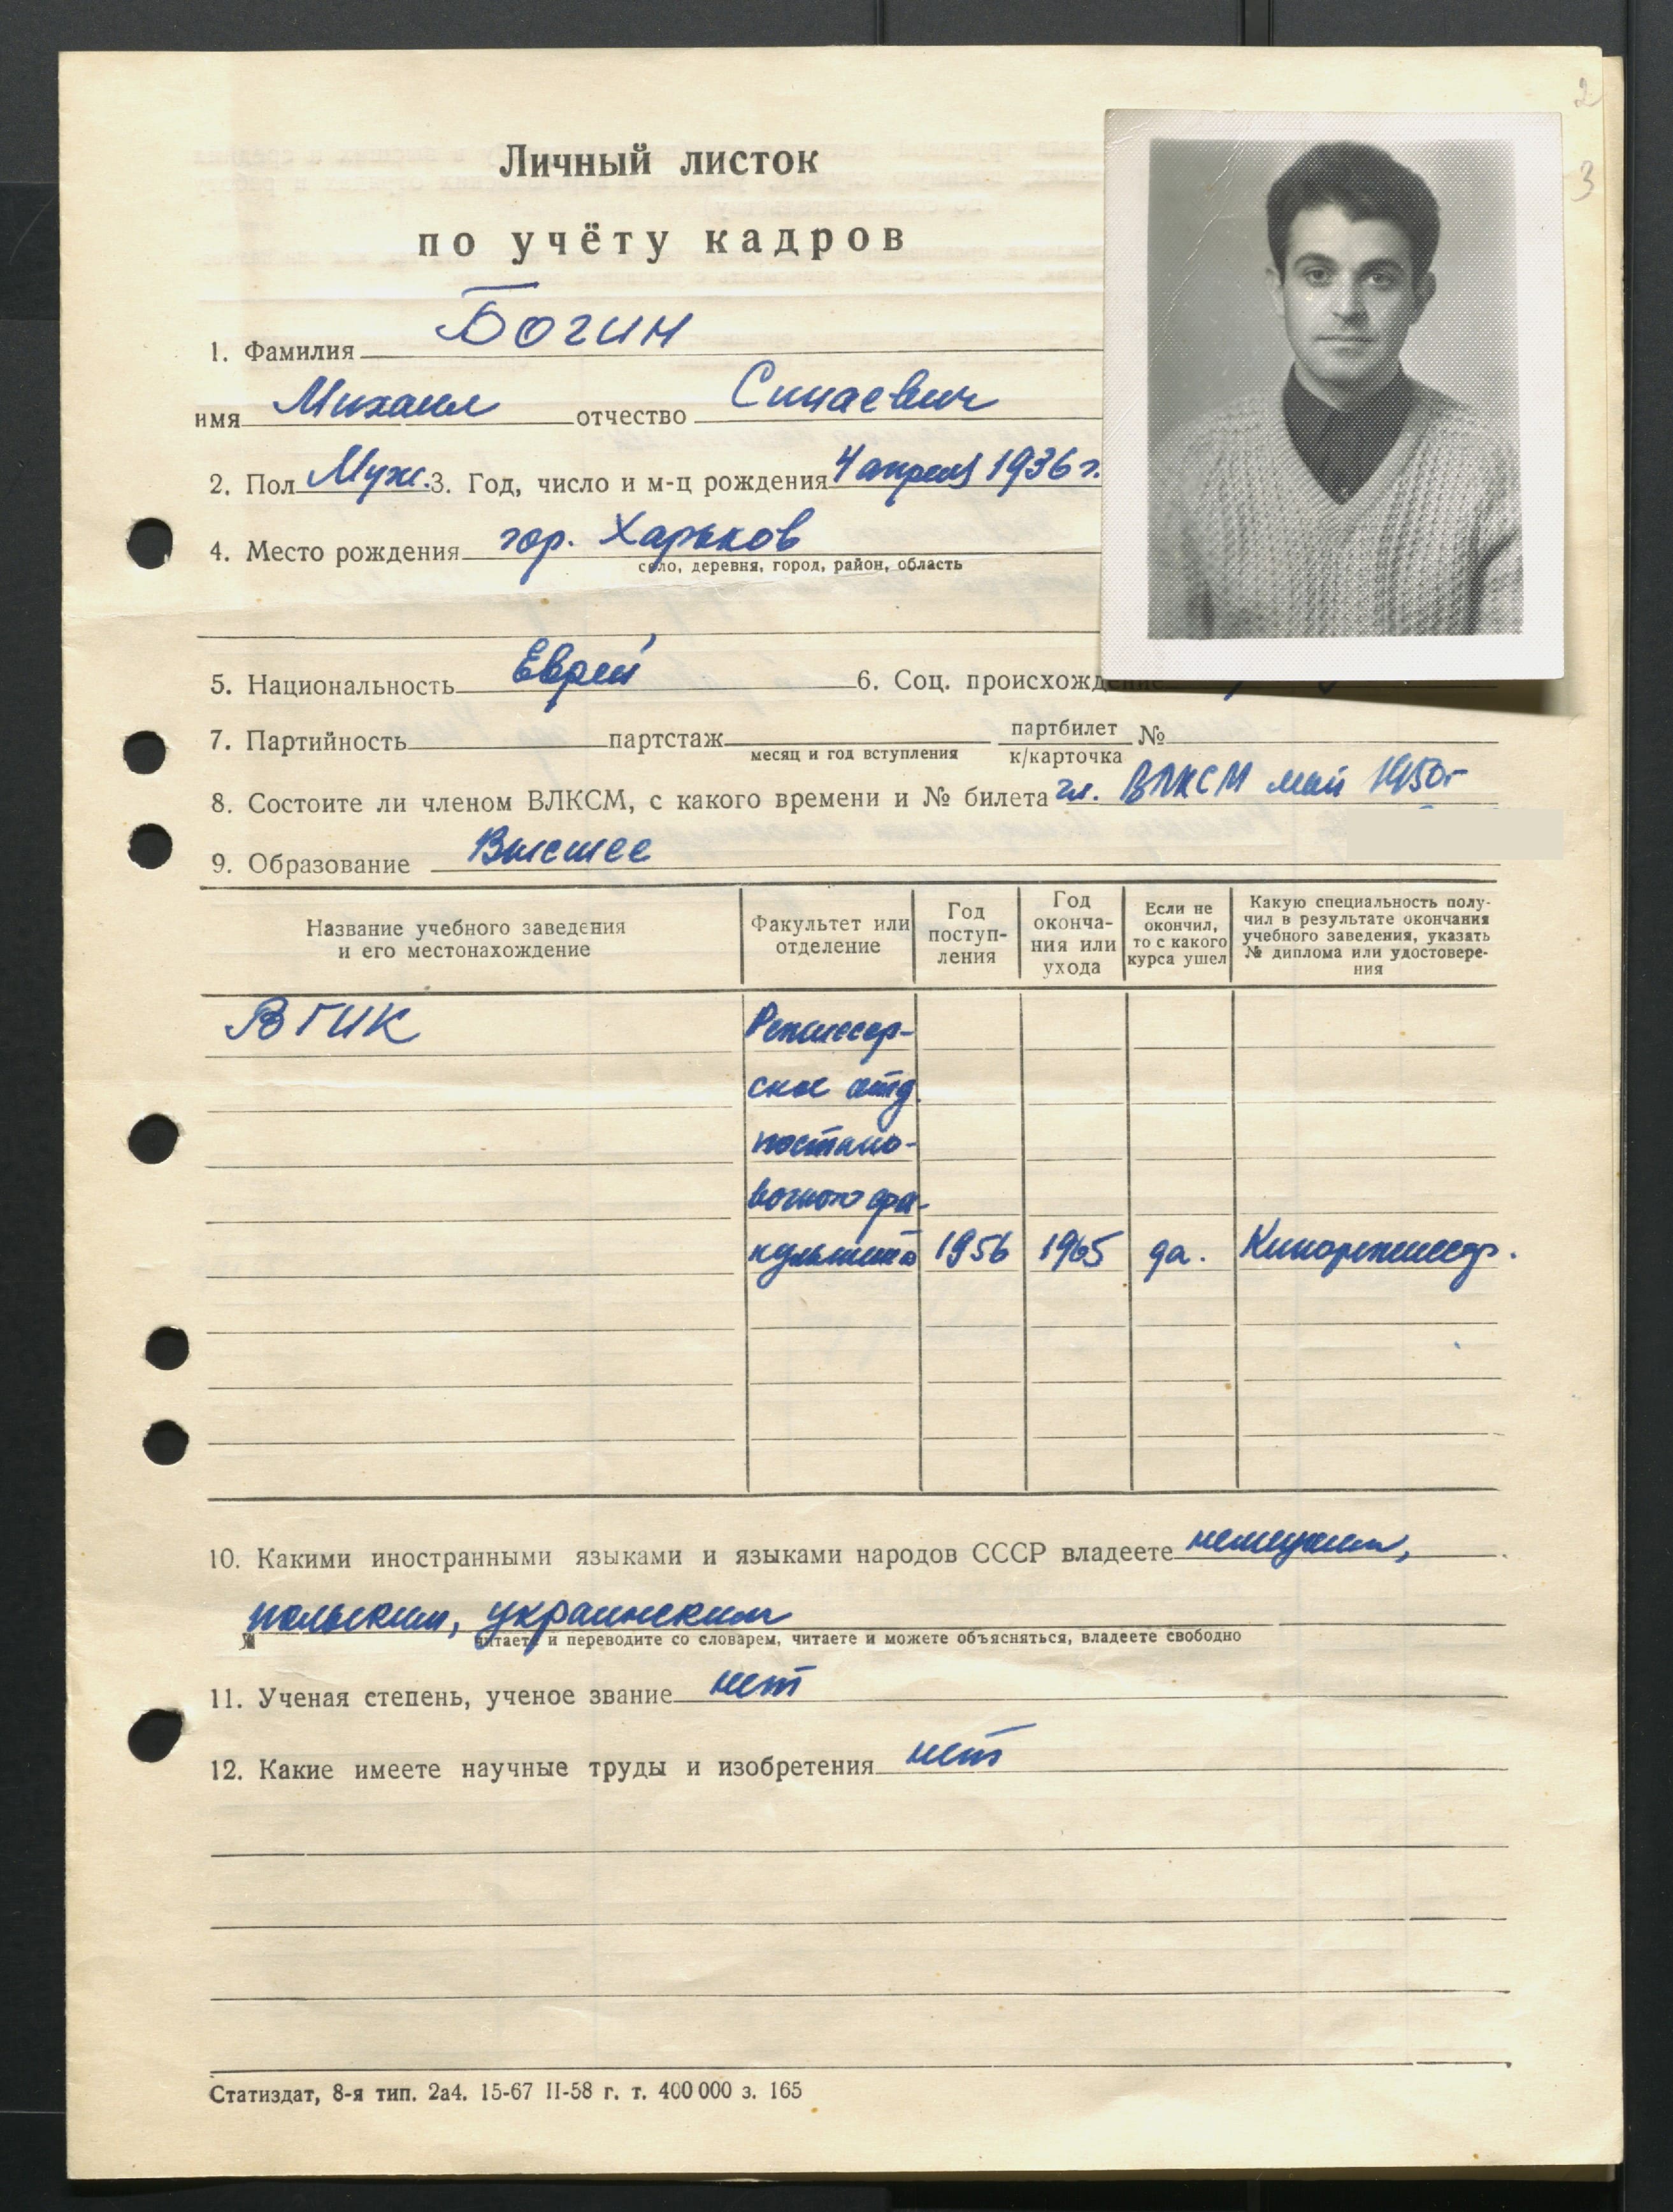 2
3
Личный листок
по учёту кадров
1. Фамилия Богин
имя Михаил отчество Синаевич
2. Пол Муж. 3. Год, число и м-ц рождения 4 апреля 1936 г.
4. Место рождения гор. Харьков
село, деревня, город, район, область
5. Национальность Еврей 6. Соц. происхождение
7. Партийность партстаж партбилет №
месяц и год вступления к/карточка
8. Состоите ли членом ВЛКСМ, с какого времени и № билета чл. ВЛКСМ май 1950г
9. Образование Высшее
Название учебного заведения и его местонахождение
Факультет или отделение
Год поступ-ления
Год оконча-ния или ухода
Если не окончил, то с какого курса ушел
Какую специальность полу-чил в результате окончания учебного заведения, указать № диплома или удостовере-ния
ВГИК Режиссер-
ское отд.
постано-
вочного фа-
культета 1956 1965 да. Кинорежиссер.
10. Какими иностранными языками и языками народов СССР владеете немецким,
польским, украинским
читаете и переводите со словарем, читаете и можете объясняться, владеете свободно
11. Ученая степень, ученое звание нет
12. Какие имеете научные труды и изобретения нет
Статиздат, 8-я тип. 2а4. 15-67 II-58 г. т. 400 000 з. 165